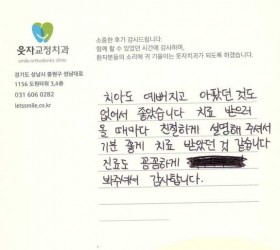 웃자교정치과
smile orthodontic clinic
경기도 성남시 중원구 성남대로
1156 도원타워 3,4층
031 606 0282
letssmile.co.kr
소중한 후기 감사드립니다.
함께 할 수 있었던 시간에 감사하며,
환자분들의 소리에 귀 기울이는 웃자치과가 되도록 하겠습니다.
치아도 예뻐지고 아팠던 것도
없어서 좋았습니다 치료 받으러
올 때마다 친절하게 설명해 주셔서
기분 좋게 치료 받았던 것 같습니다
진료도 꼼꼼하게
봐주셔서 감사합니다.